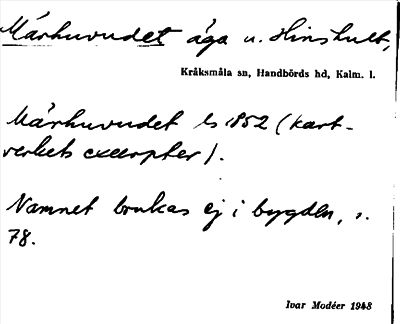 Mårhuvudet äga u. Hinshult,
Kråksmåla sn, Handbörds hd, Kalm. l.
Mårhuvudet ls 1852 (Kart-
verkets excerpter).
Namnet brukas ej i bygden, s.
78.
Ivar Modéer 1948